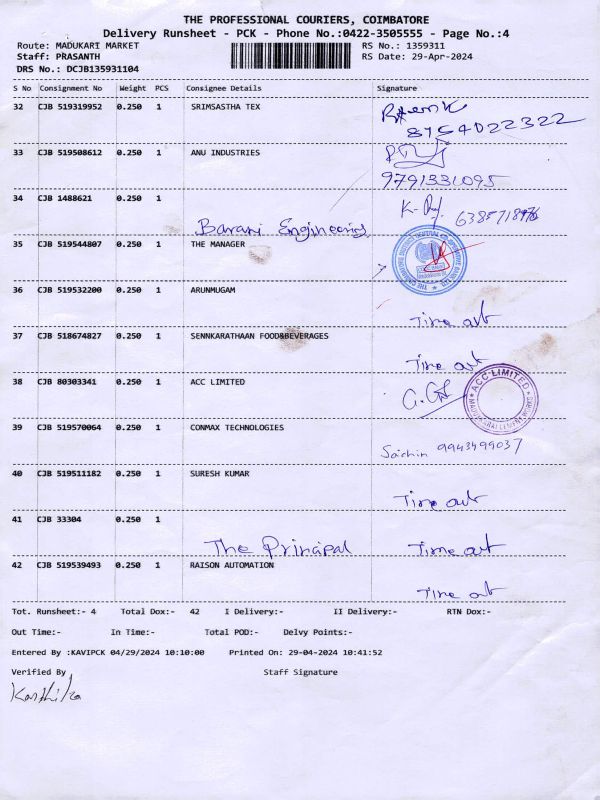 THE PROFESSIONAL COURIERS, COIMBATORE
Delivery Runsheet - PCK - Phone No.:0422-3505555 - Page No.:4
Route: MADUKARI MARKET RS No.: 1359311
Staff: PRASANTH RS Date: 29-Apr-2024
DRS No.: DCJB135931104
S No Consignment No Weight PCS Consignee Details Signature
32 CJB 519319952 0.250 1 SRIMSASTHA TEX
8754022322
33 CJB 519508612 0.250 1 ANU INDUSTRIES
9791331095
34 CJB 1488621 0.250 1
Barani Engineering
35 CJB 519544807 0.250 1 THE MANAGER
36 CJB 519532200 0.250 1 ARUNMUGAM
Time out
37 CJB 518674827 0.250 1 SENNKARATHAAN FOOD&BEVERAGES
Time out
38 CJB 80303341 0.250 1 ACC LIMITED
ACC LIMITED
39 CJB 519570064 0.250 1 CONMAX TECHNOLOGIES
Sachin 9943499037
40 CJB 519511182 0.250 1 SURESH KUMAR
Time out
41 CJB 33304 0.250 1
The Prinipal Time out
42 CJB 519539493 0.250 1 RAISON AUTOMATION
Time out
Tot. Runsheet:- 4 Total Dox:- 42 I Delivery:- II Delivery:- RTN Dox:-
Out Time:- In Time:- Total POD:- Delvy Points:-
Entered By :KAVIPCK 04/29/2024 10:10:00 Printed On: 29-04-2024 10:41:52
Verified By Staff Signature